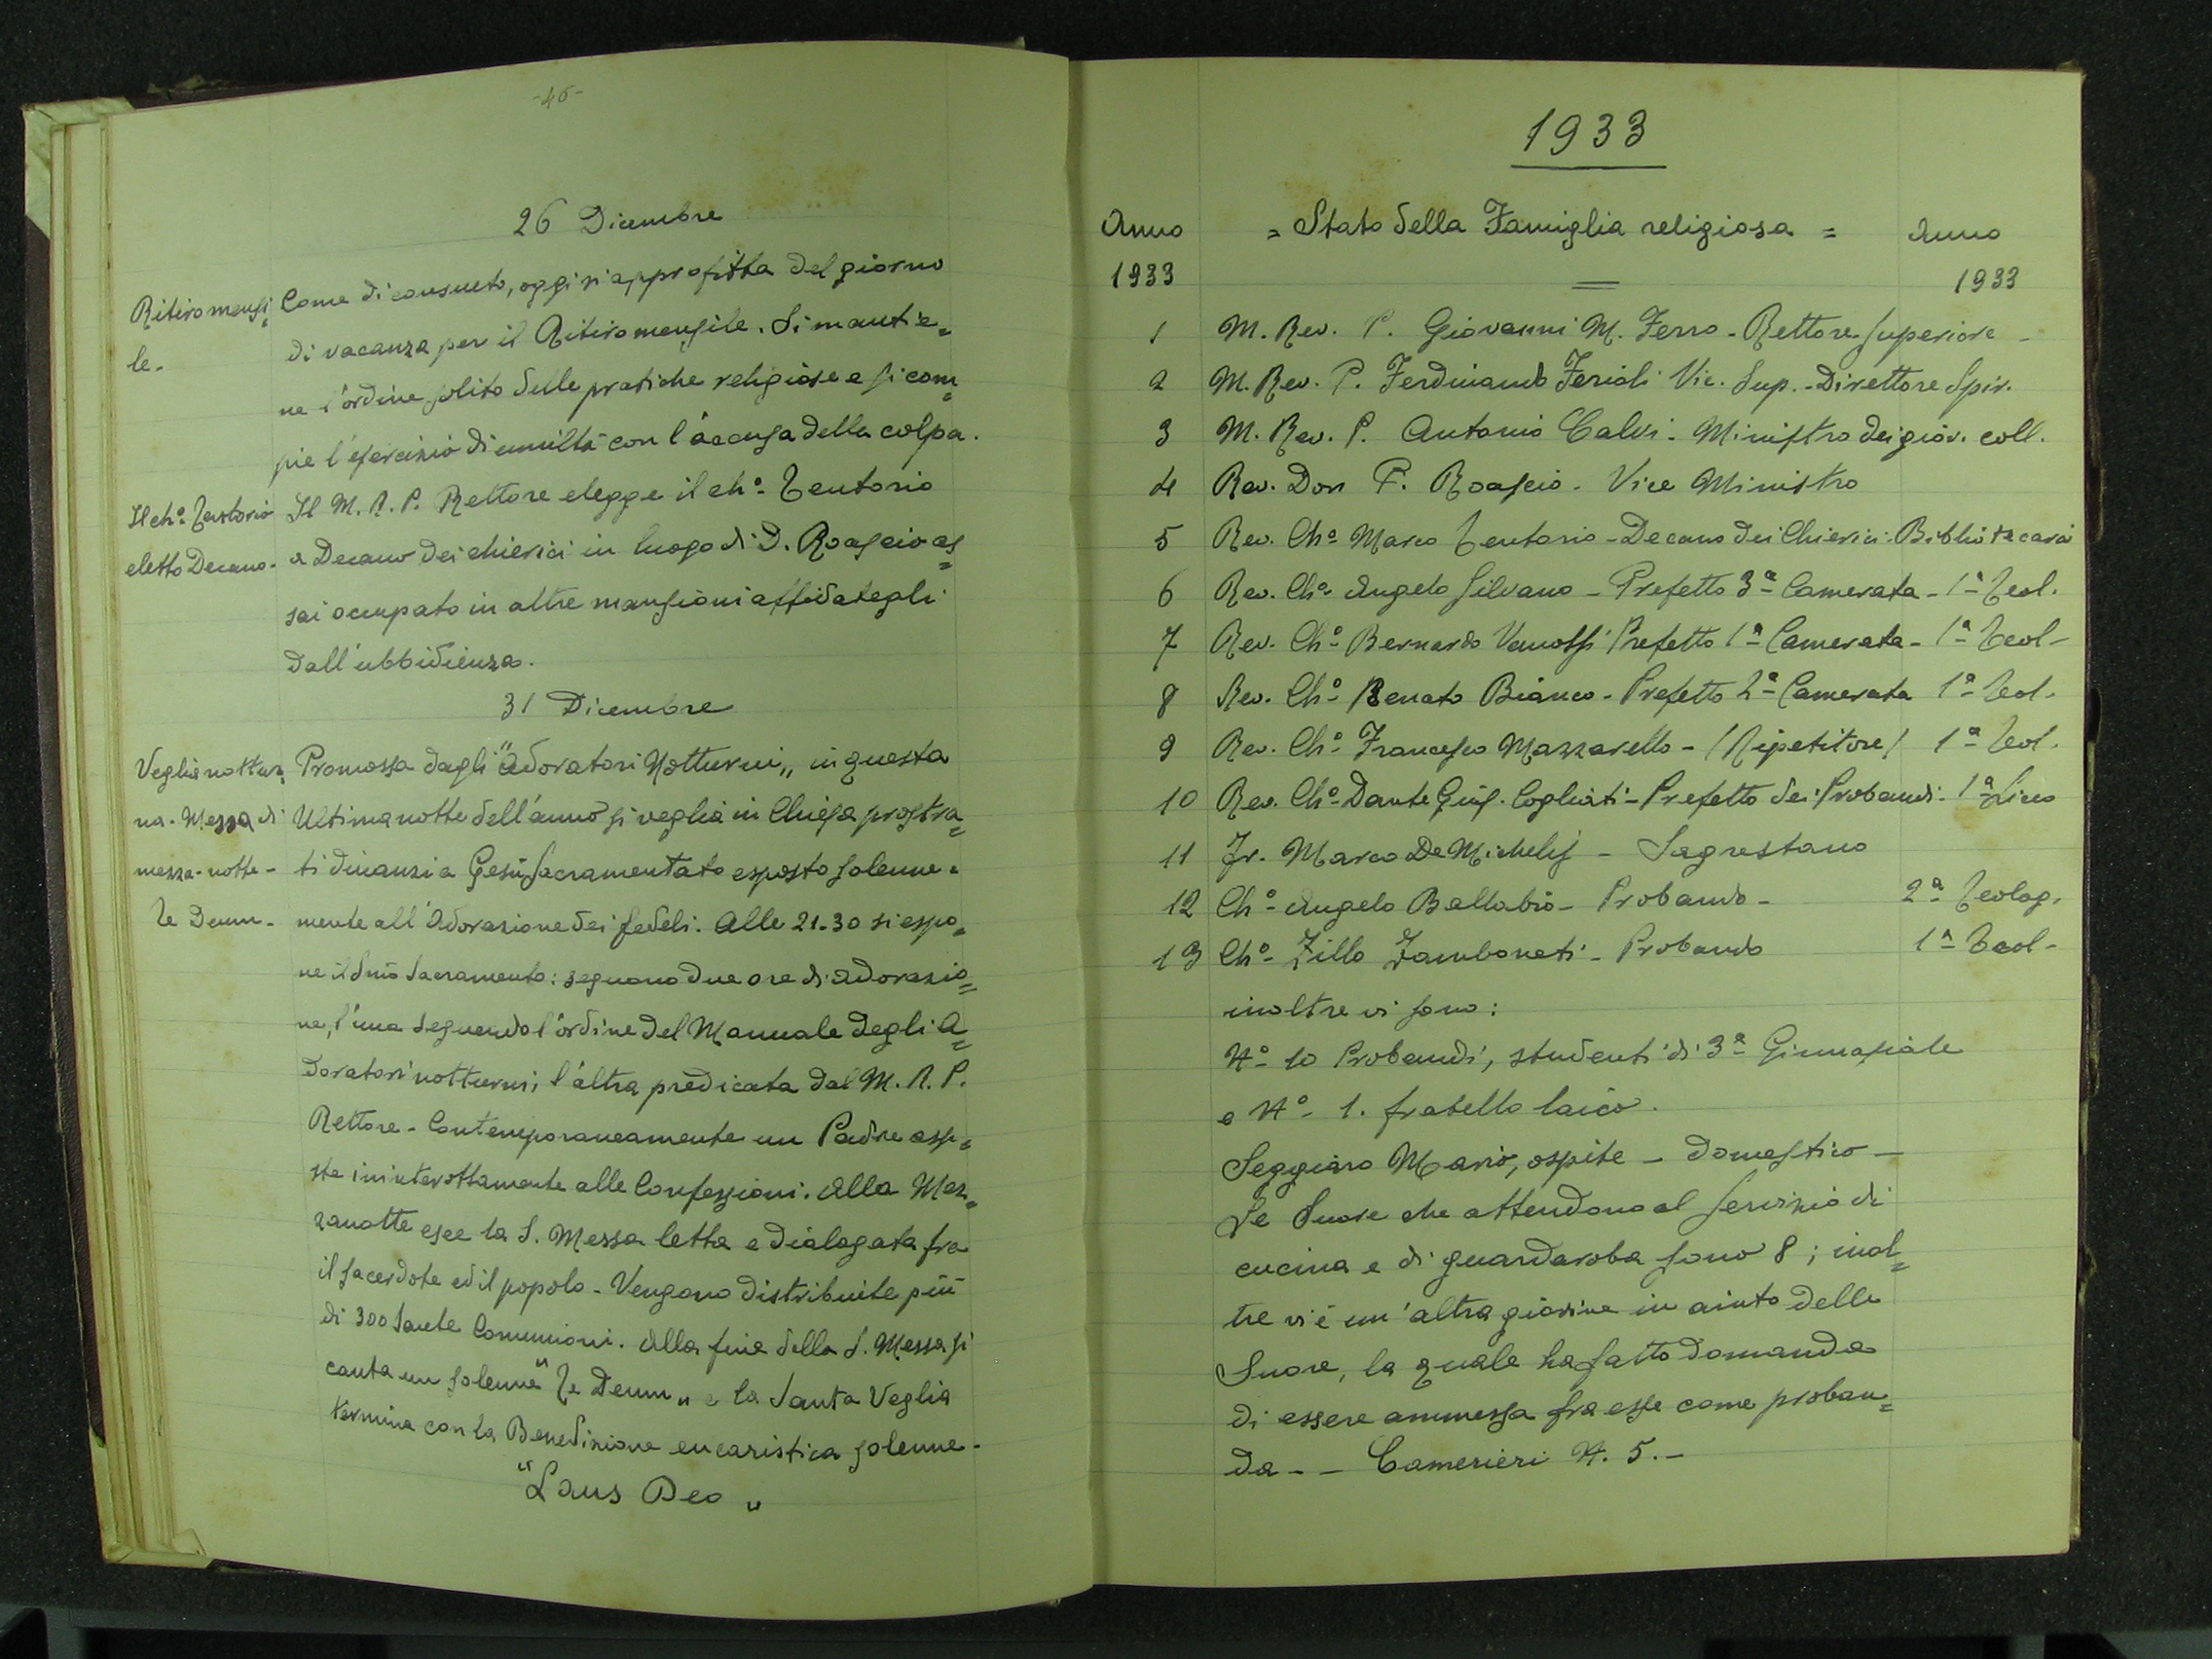 -46-
26 Dicembre
Ritiro mensi=
le.
Come di consueto, oggi si approfitta del giorno
di vacanza per il Ritiro mensile. Si mantie=
ne l'ordine solito delle pratiche religiose e si com=
pie l'esercizio di umiltà con l'accusa della colpa.
Il chº Tentorio
eletto Decano-
Il M. R. P. Rettore elegge il chº Tentorio
a Decano dei chierici in luogo di D. Roascio as=
sai occupato in altre mansioni affidategli
dall'ubbidienza.
31 Dicembre
Veglia nottur=
na. Messa di
mezza-notte-
Te Deum-
Promossa dagli "Adoratori Notturni„ in questa
Ultima notte dell'anno si veglia in Chiesa prostra=
ti dinanzi a Gesù Sacramentato esposto solenne=
mente all'Adorazione dei fedeli. Alle 21.30 si espo=
ne il Smo Sacramento: seguono due ore di adorazio=
ne, l'una seguendo l'ordine del Manuale degli A=
doratori notturni, l'altra predicata dal M. R. P.
Rettore- Contemporaneamente un Padre assi=
ste ininterottamente alle Confessioni. Alla Mez=
zanotte esce la S. Messa letta e dialogata fra
il sacerdote ed il popolo- Vengono distribuite più
di 300 Sante Comunioni. Alla fine della S. Messa si
canta un solenne "Te Deum„ e la Santa Veglia
termina con la Benedizione eucaristica solenne-
"Laus Deo„
1933
Anno = Stato della Famiglia religiosa = Anno
1933 1933
1 M. Rev. P. Giovanni M. Ferro - Rettore Superiore -
2 M. Rev. P. Ferdinando Ferioli Vic. Sup. - Direttore Spir.
3 M. Rev. P. Antonio Calvi - Ministro dei giov. coll.
4 Rev. Don P. Roascio - Vice Ministro
5 Rev. Chº Marco Tentorio - Decano dei Chierici - Bibliotecario
6 Rev. Chº Angelo Silvano - Prefetto 3ª Camerata - 1ª Teol.
7 Rev. Chº Bernardo Vanossi Prefetto 1ª Camerata - 1ª Teol-
8 Rev. Chº Renato Bianco - Prefetto 2ª Camerata 1ª Teol.
9 Rev. Chº Francesco Mazzarello - (Ripetitore) 1ª Teol.
10 Rev. Chº Dante Gius. Cogliati - Prefetto dei Probandi - 1ª Liceo
11 Fr. Marco De Michelis - Sagrestano
12 Chº Angelo Ballabio - Probando - 2ª Teolog.
13 Chº Zillo Zamboneti - Probando 1ª Teol-
inoltre vi sono:
Nº 10 Probandi, studenti di 3ª Ginnasiale
e Nº 1. fratello laico.
Seggiaro Mario, ospite - domestico -
Le Suore che attendono al servizio di
cucina e di guardaroba sono 8; inol=
tre vi è un'altra giovine in aiuto delle
Suore, la quale ha fatto domanda
di essere ammessa fra esse come proban=
da - - Camerieri N. 5. -